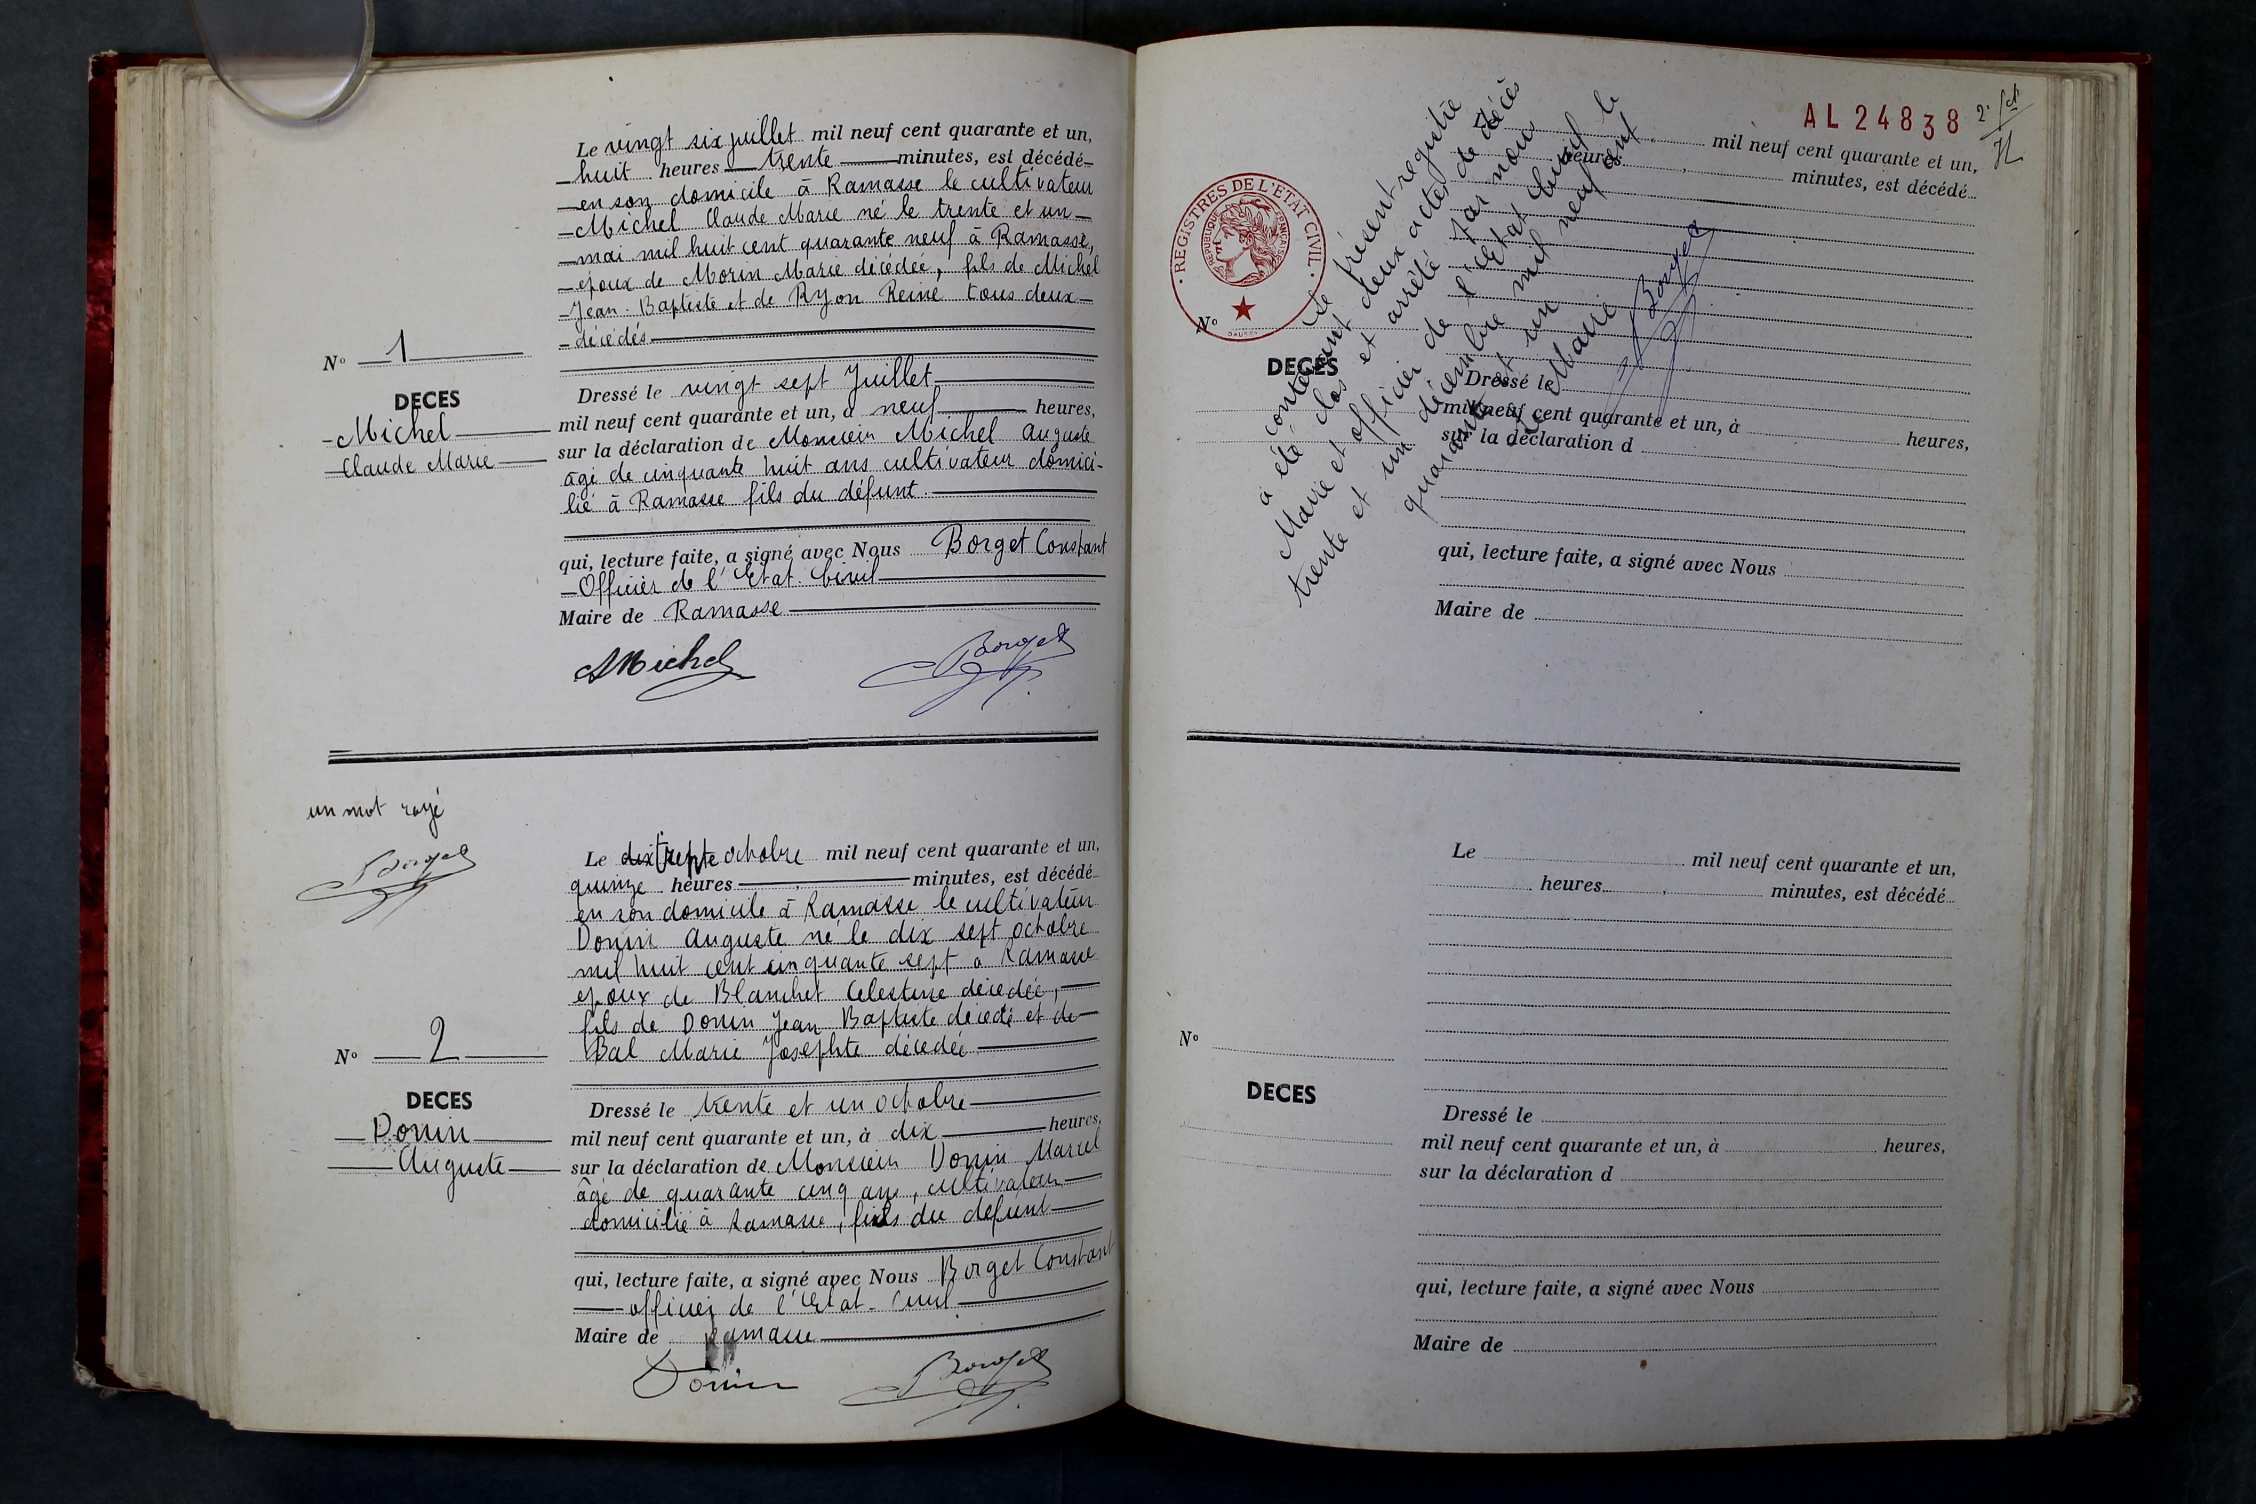 Le vingt six juillet mil neuf cent quarante et un,
huit heures trente minutes, est décédé
en son domicile à Ramasse le cultivateur
Michel Claude Marie né le trente et un
mai mil huit cent quarante neuf à Ramasse,
époux de Morin Marie décédée, fils de Michel
Jean-Baptiste et de Ryon Reine tous deux
décédés
N° 1
DECES
Michel
Claude Marie
Dressé le vingt sept Juillet
mil neuf cent quarante et un, à neuf heures,
sur la déclaration de Monsieur Michel Auguste
âgé de cinquante huit ans cultivateur domici-
lié à Ramasse fils du défunt.
qui, lecture faite, a signé avec Nous Borget Constant
Officier de l'Etat-Civil
Maire de Ramasse
AMichel
Borget
un mot rayé
Borget
Le dix trente octobre mil neuf cent quarante et un,
quinze heures minutes, est décédé
en son domicile à Ramasse le cultivateur
Donin Auguste né le dix sept octobre
mil huit cent cinquante sept à Ramasse
époux de Blanchet Celestine décédée,
fils de Donin Jean Baptiste décédé et de
Bal Marie Josephte décédée
N° 2
DECES
Donin
Auguste
Dressé le trente et un octobre
mil neuf cent quarante et un, à dix heures,
sur la déclaration de Monsieur Donin Marcel
âgé de quarante cinq ans, cultivateur
domicilié à Ramasse, fils du défunt
qui, lecture faite, a signé avec Nous Borget Constant
officier de l'Etat-Civil
Maire de Ramasse
Donin
Borget
AL 24838
2e
REGISTRES DE L'ETAT CIVIL
REPUBLIQUE FRANÇAISE
Le mil neuf cent quarante et un,
heures minutes, est décédé
N°
DECES
Dressé le
mil neuf cent quarante et un, à heures,
sur la déclaration d
qui, lecture faite, a signé avec Nous
Maire de
Le présent registre
contenant deux actes de décès
a été clos et arrêté par nous
Maire et officier de l'Etat Civil le
trente et un décembre mil neuf cent
quarante et un
Le Maire
Borget
Le mil neuf cent quarante et un,
heures minutes, est décédé
N°
DECES
Dressé le
mil neuf cent quarante et un, à heures,
sur la déclaration d
qui, lecture faite, a signé avec Nous
Maire de